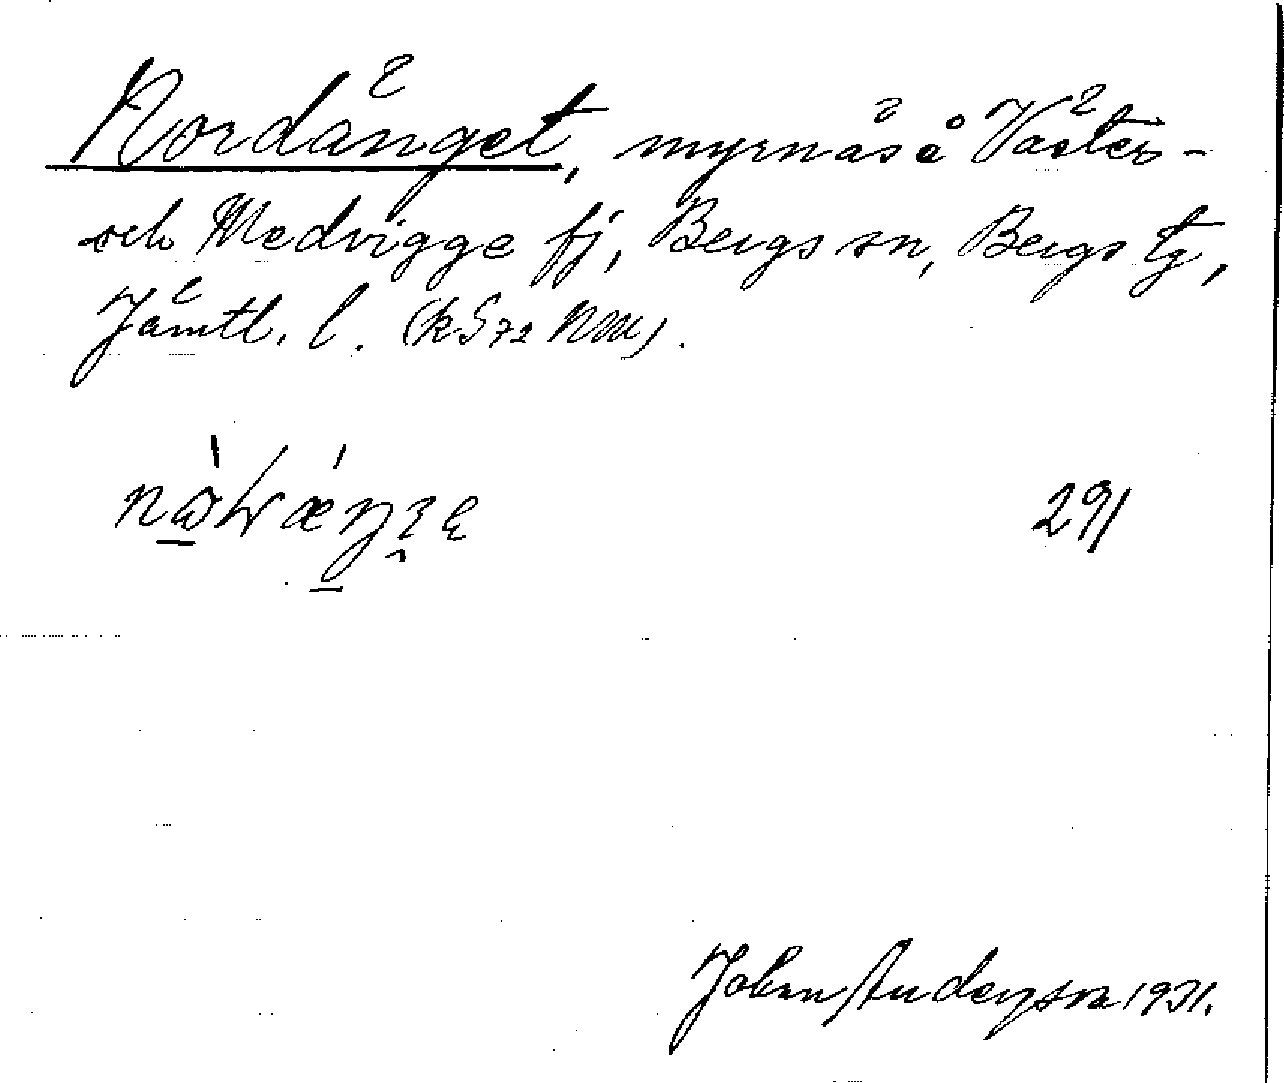 Nordänget, myrnäs å Väster-
och Medvigge fj, Bergs sn, Bergs tg,
Jämtl. l. (k S 72 NM).
291
Johan Anderson 1931.